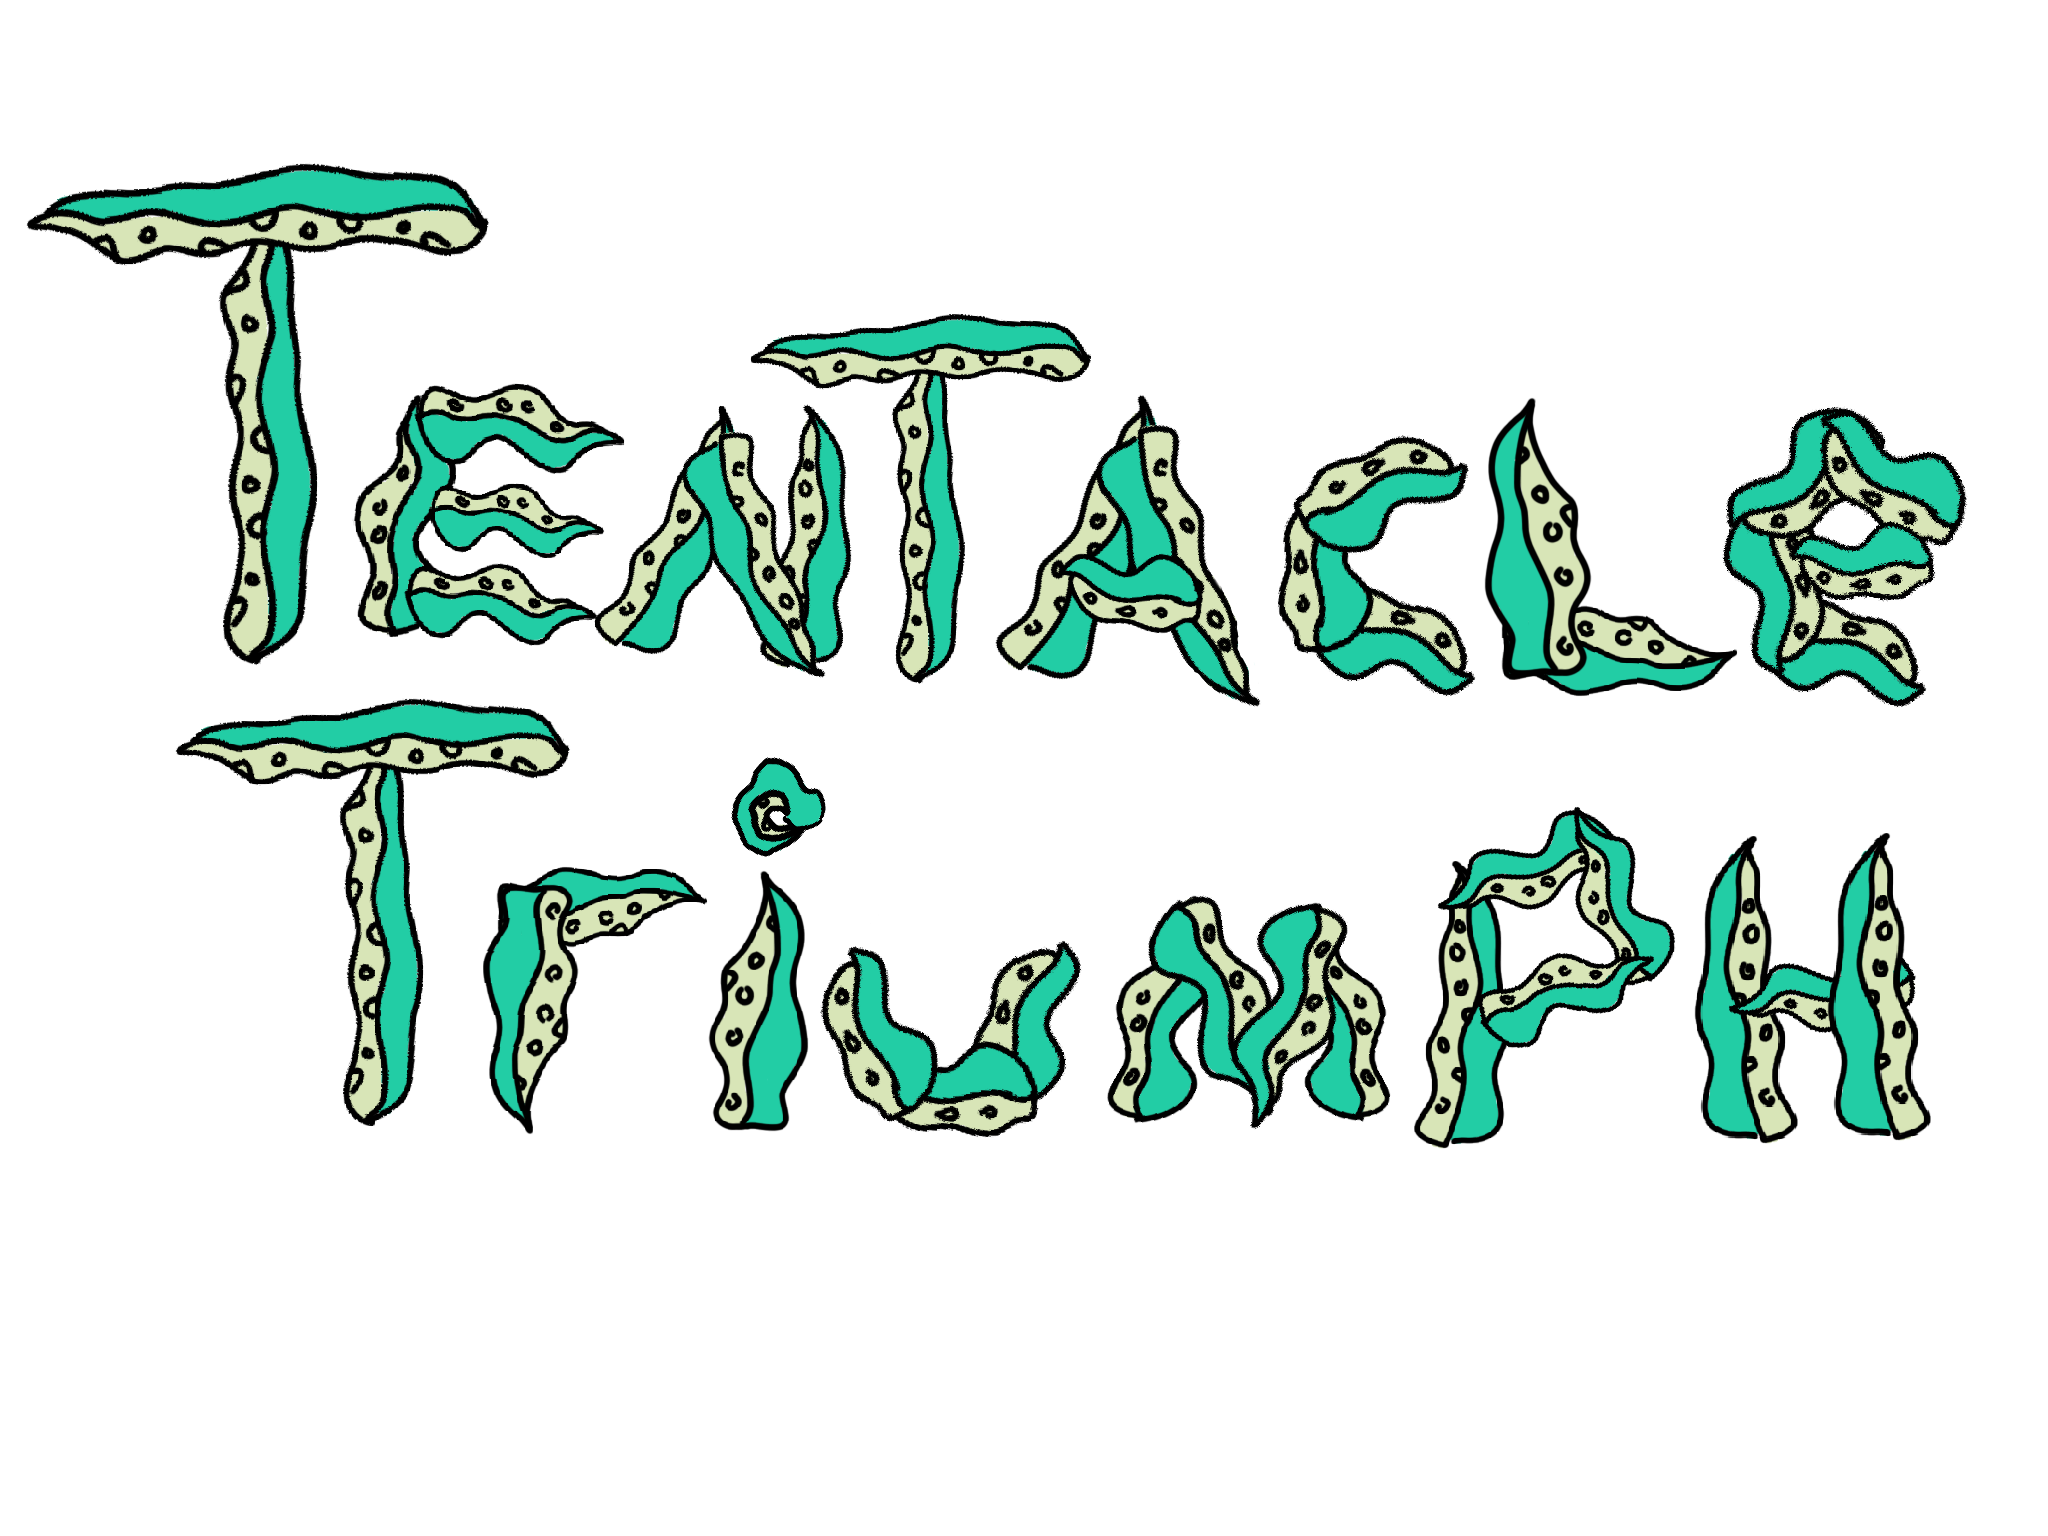 TENTACLE
TriUMPH